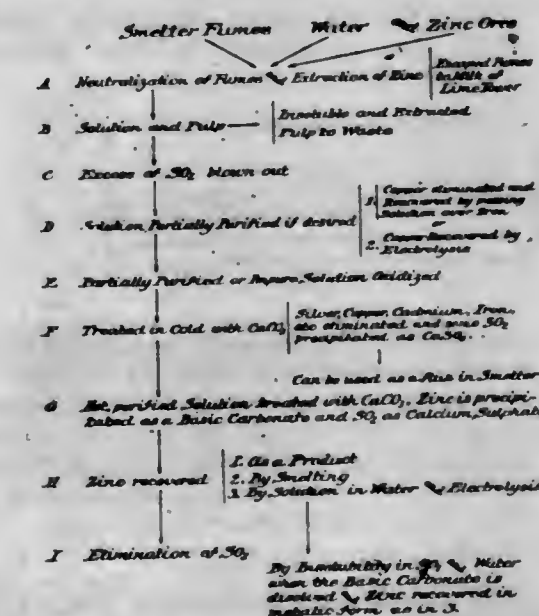 Smelter Fumes Water & Zinc Ores
A Neutralization of Fumes & Extraction of Zinc
Escaped Fumes
to Milk of
Lime Tower
B Solution and Pulp
Insoluble and Extracted
Pulp to Waste
C Excess of SO2 blown out
D Solution Partially Purified if desired
1. Copper eliminated and
Recovered by passing
Solution over Iron
or
2. Copper Recovered by
Electrolysis
E Partially Purified or Impure Solution Oxidized
F Treated in Cold with CaCO3
Silver, Copper, Cadmium, Iron,
etc eliminated and some SO2
precipitated as CaSO4.
Can be used as a flux in Smelter
G Hot, purified Solution treated with CaCO3. Zinc is precipi-
tated as a Basic Carbonate and SO2 as Calcium Sulphate
H Zinc recovered
1. As a Product
2. By Smelting
3. By Solution in Water & Electrolysis
I Elimination of SO2
By in SO2 & Water
when the Basic Carbonate is
dissolved & Zinc recovered in
metalic form as in 3.